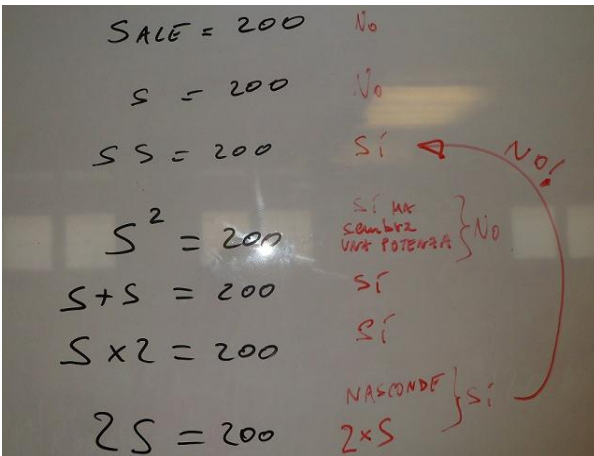 SALE = 200 No
s = 200 No
SS = 200 Sí NO!
S² = 200 Sí MA sembra UNA POTENZA } No
S+S = 200 Sí
S×2 = 200 Sí
2S = 200 NASCONDE 2×S } Sí